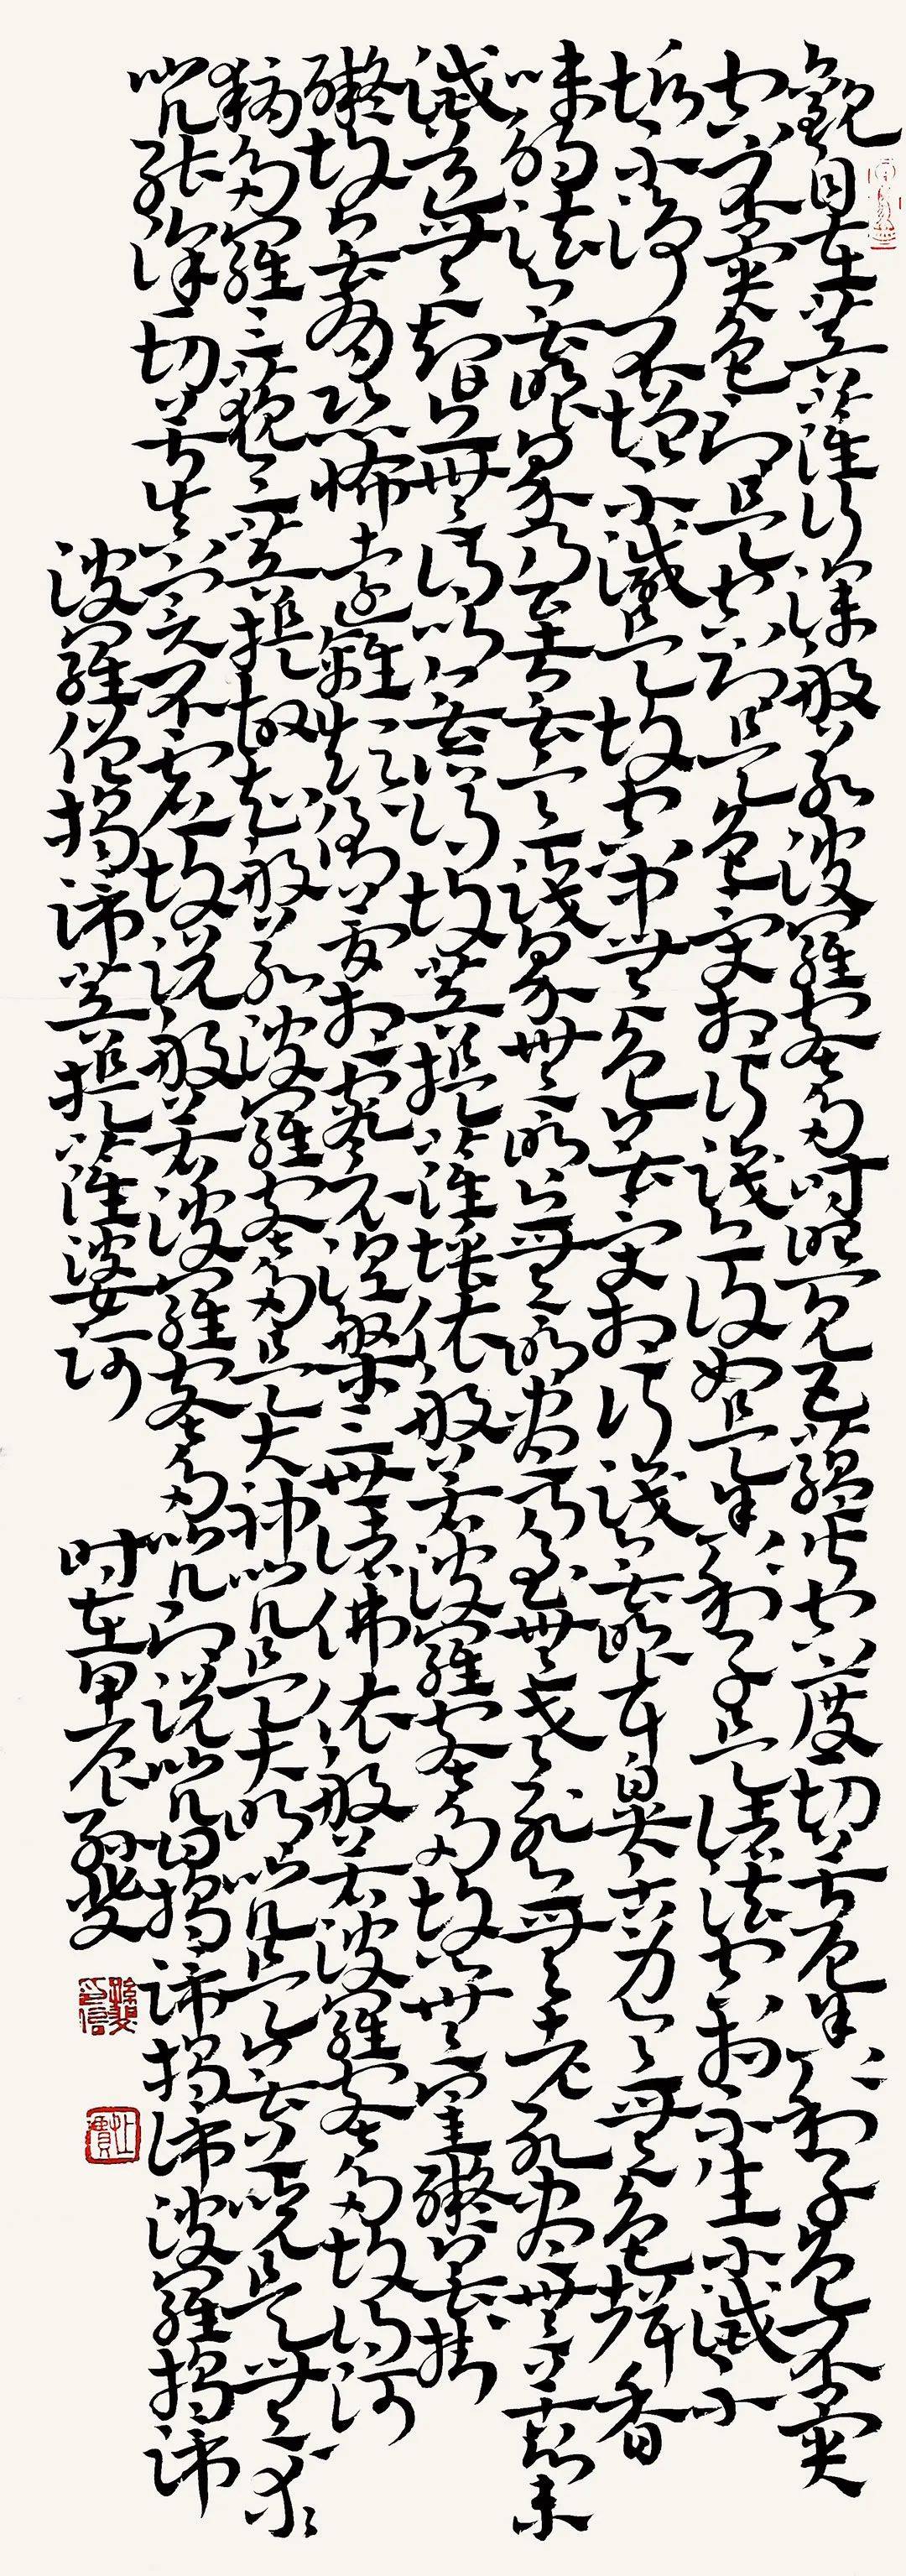 觀自在菩薩行深般若波羅蜜多時照見五蘊皆空度一切苦厄舍利子色不異
空空不異色色即是空空即是色受想行識亦復如是舍利子是諸法空相不生不滅不
垢不淨不增不減是故空中無色無受想行識無眼耳鼻舌身意無色聲香
味觸法無眼界乃至無意識界無無明亦無無明盡乃至無老死亦無老死盡無苦集
滅道無智亦無得以無所得故菩提薩埵依般若波羅蜜多故心無罣礙無罣
礙故無有恐怖遠離顛倒夢想究竟涅槃三世諸佛依般若波羅蜜多故得阿
耨多羅三藐三菩提故知般若波羅蜜多是大神咒是大明咒是無上咒是無等等
咒能除一切苦真實不虛故說般若波羅蜜多咒即說咒曰揭諦揭諦波羅揭諦
波羅僧揭諦菩提薩婆訶
時在甲辰孫斐